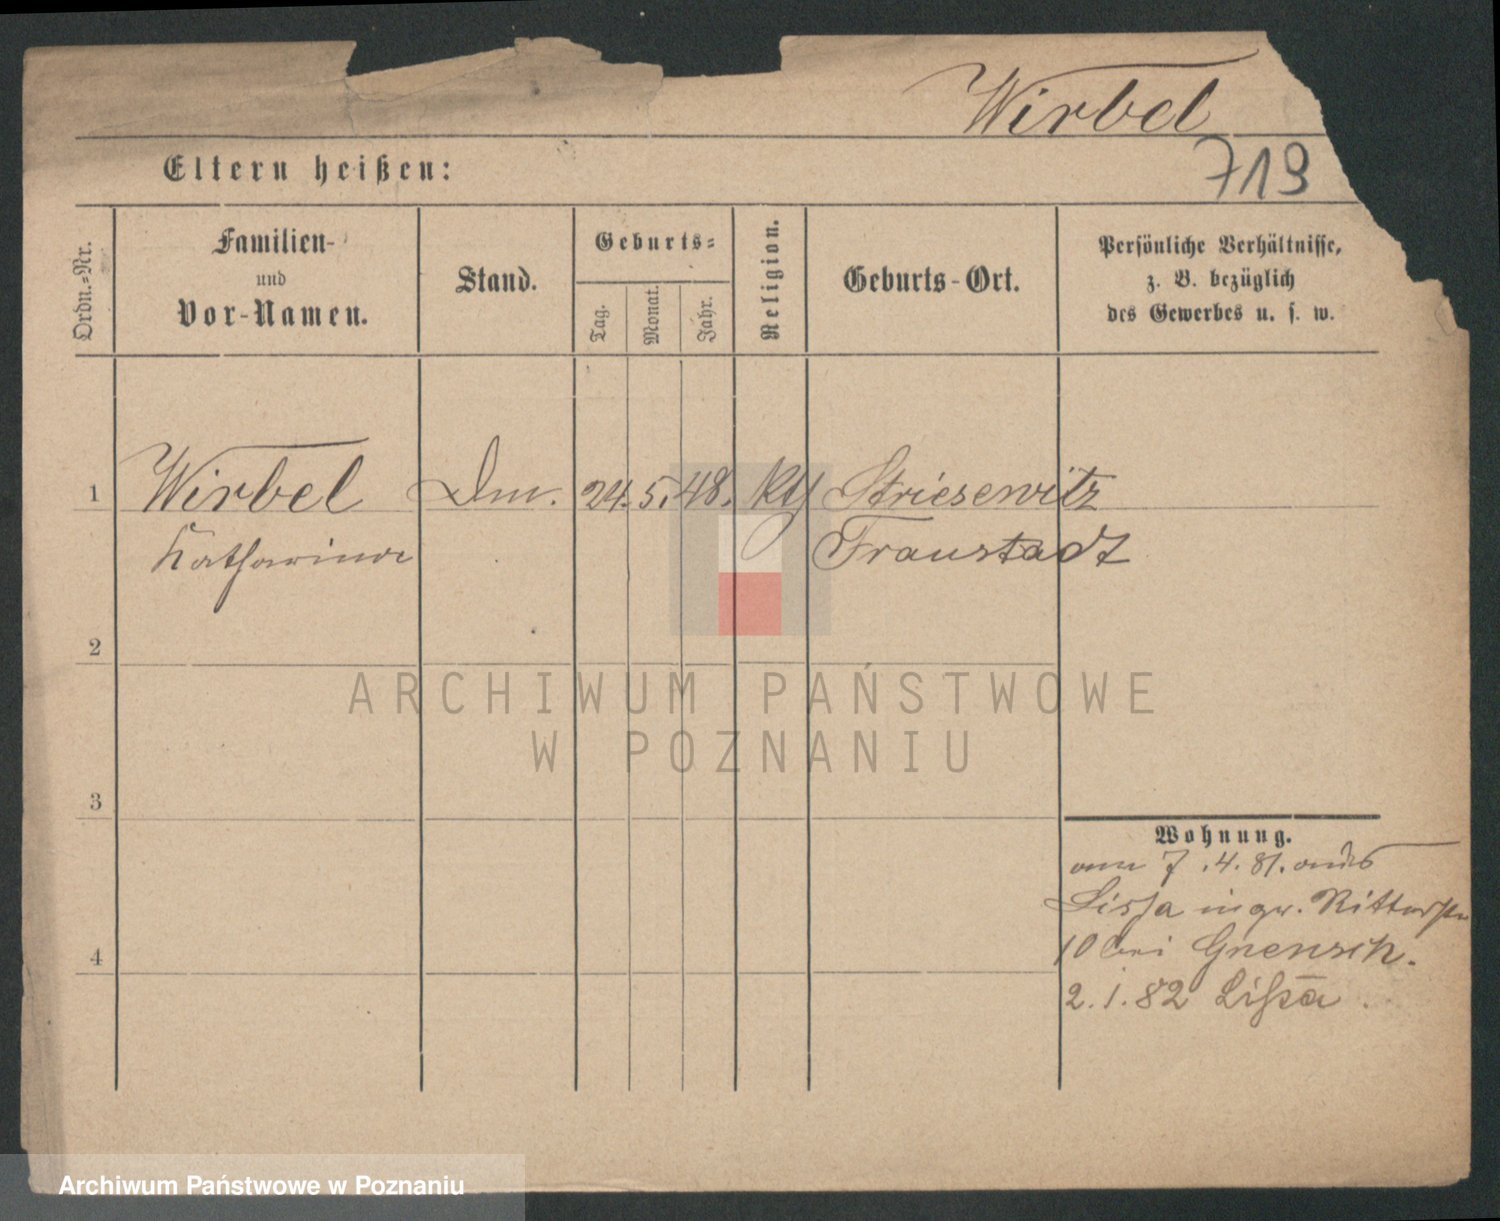 Wirbel
719
Eltern heißen:
Ordn.-Nr.
Familien-
und
Vor-Namen.
Stand.
Geburts-
Tag.
Monat.
Jahr.
Religion.
Geburts-Ort.
Persönliche Verhältnisse,
z. B. bezüglich
des Gewerbes u. s. w.
1 Wirbel 24. 5. 48. Striesewitz
Katharina Fraustadt
2
3
4
Wohnung.
7.4.81. aus
Lissa in gr. Ritterstr
10 bei
2.1.82 Lissa.
ARCHIWUM PAŃSTWOWE
W POZNANIU
Archiwum Państwowe w Poznaniu